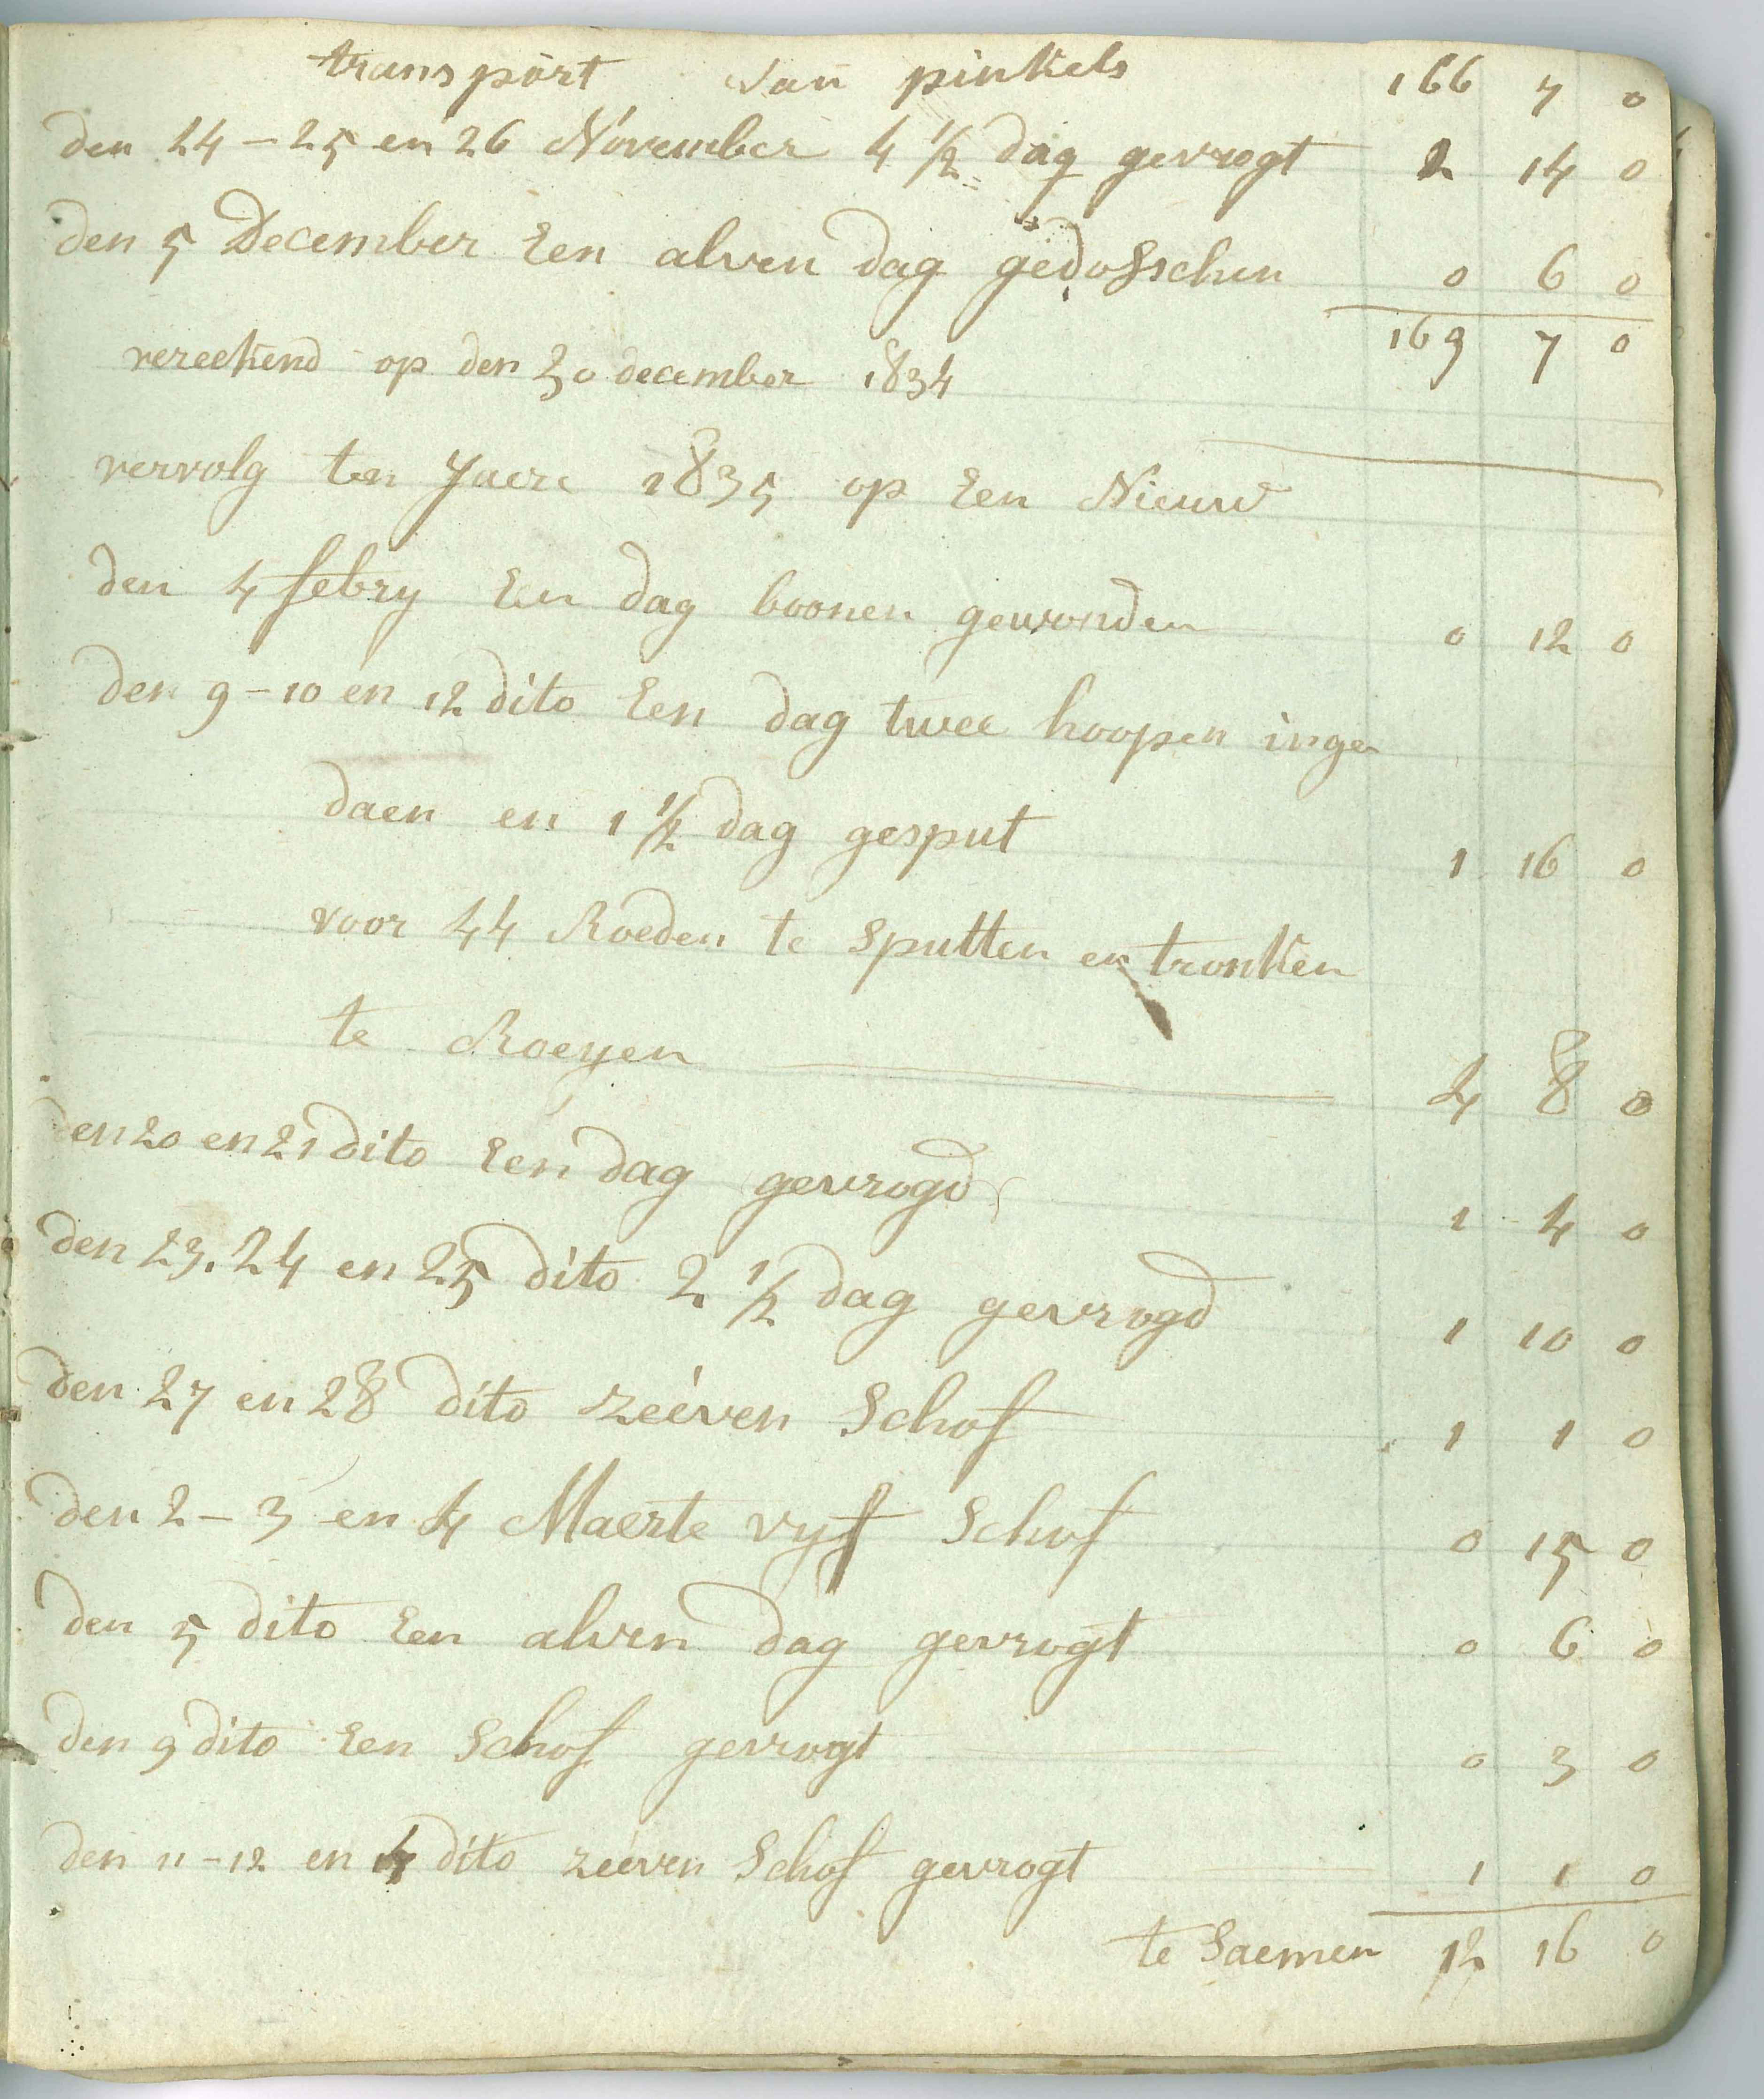 transport van pinkels 166 7 0
den 24 - 25 en 26 November 4 1/2 dag gevrogt 2 14 0
den 5 December Een alven dag gedosschen 0 6 0
169 7 0
vereekend op den 30 december 1834
vervolg ten Jaere 1835 op Een Nieuw
den 4 febry Een dag boonen gewonden 0 12 0
den 9 - 10 en 12 dito Een dag twee hoopen inge
daen en 1 1/2 dag gesput 1 16 0
voor 44 Roeden te Sputten en tronken
te Roeyen 4 8 0
den 20 en 21 dito Een dag gevrogd 1 4 0
den 23. 24 en 25 dito 2 1/2 dag gevrogd 1 10 0
den 27 en 28 dito zeeven Schof 1 1 0
den 2 - 3 en 4 Maerte vyf Schof 0 15 0
den 5 dito Een alven dag gevrogt 0 6 0
den 9 dito Een Schof gevrogt 0 3 0
den 11 - 12 en 14 dito zeeven Schof gevrogt 1 1 0
te Saemen 12 16 0